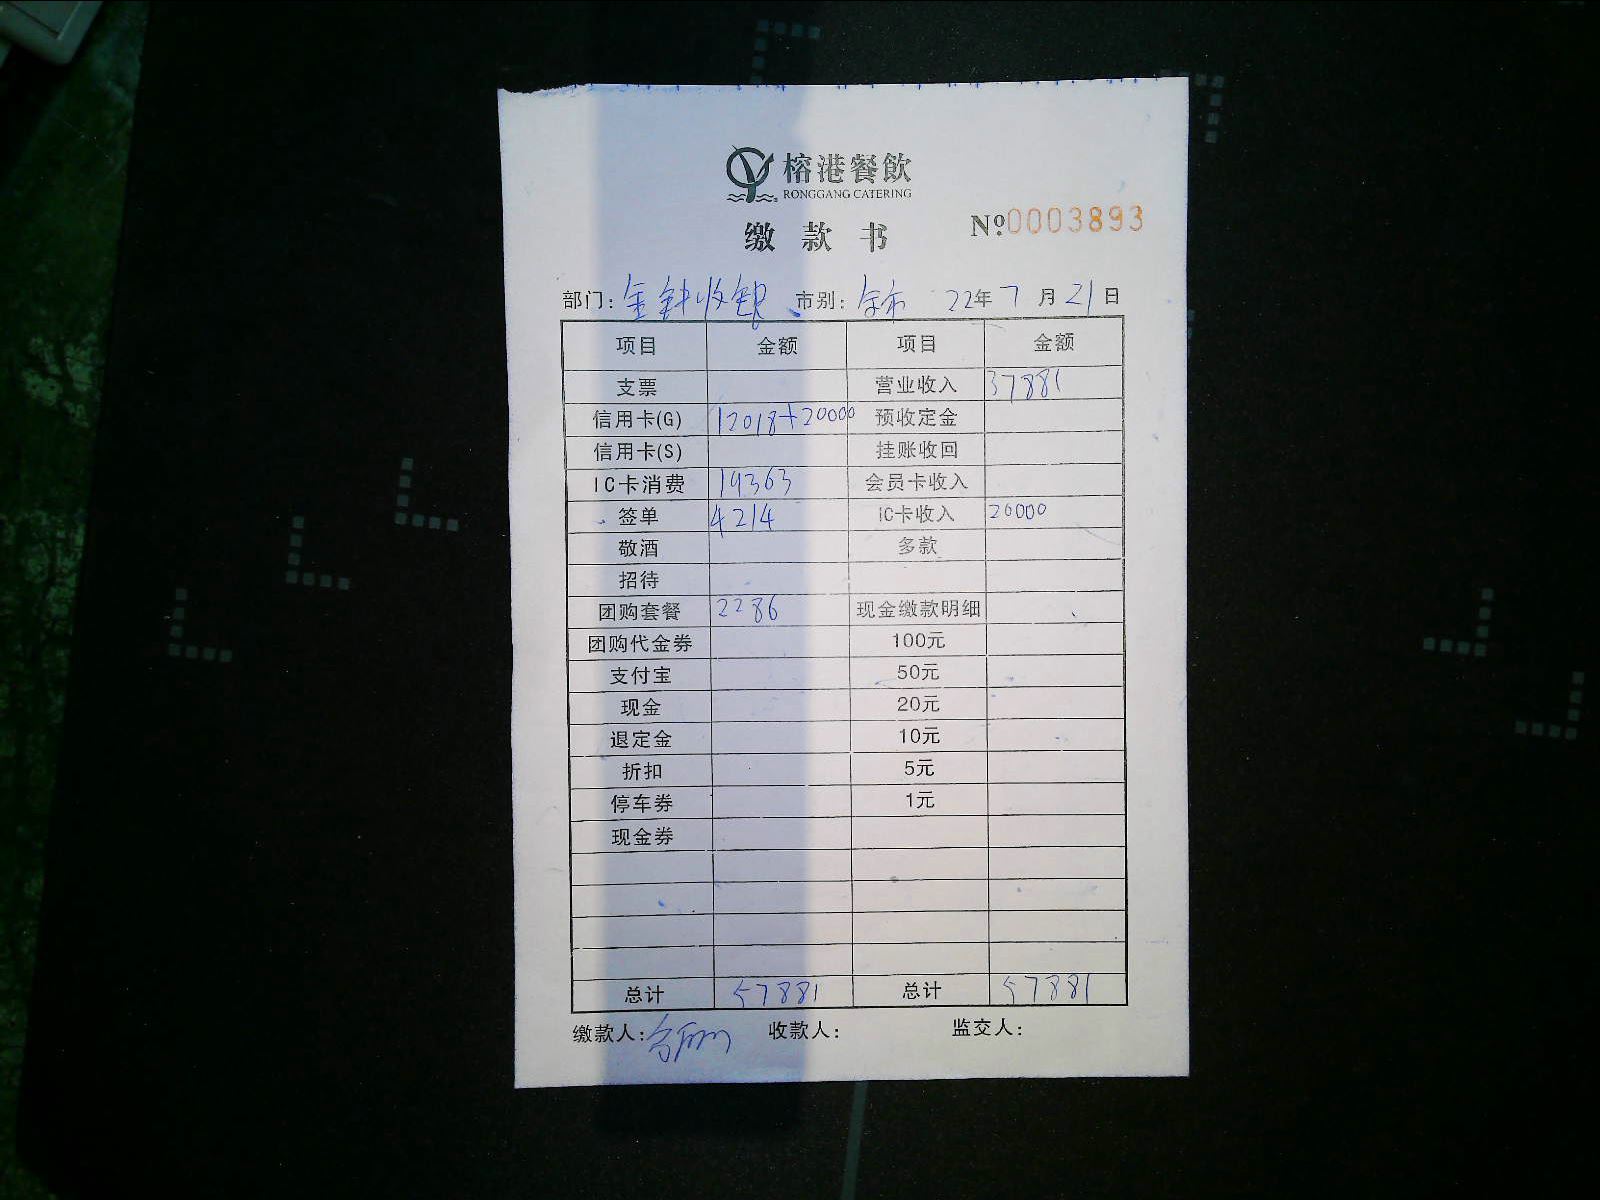 榕港餐飲
RONGGANG CATERING
缴款书
№0003893
部门: 金钟收银 市别: 全市 22年7月21日
项目 金额 项目 金额
支票 营业收入 37881
信用卡(G) 12018+20000 预收定金
信用卡(S) 挂账收回
IC卡消费 19363 会员卡收入
签单 4214 IC卡收入 20000
敬酒 多款
招待
团购套餐 2286 现金缴款明细
团购代金券 100元
支付宝 50元
现金 20元
退定金 10元
折扣 5元
停车券 1元
现金券
总计 57881 总计 57881
缴款人: 收款人: 监交人: